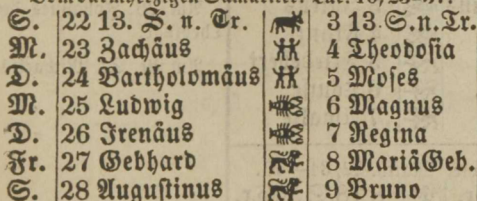 S. 22 13. S. n. Tr. 3 13. S. n. Tr.
M. 23 Zachäus 4 Theodosia
D. 24 Bartholomäus 5 Moses
M. 25 Ludwig 6 Magnus
D. 26 Irenäus 7 Regina
Fr. 27 Gebhard 8 Mariä Geb.
S. 28 Augustinus 9 Bruno